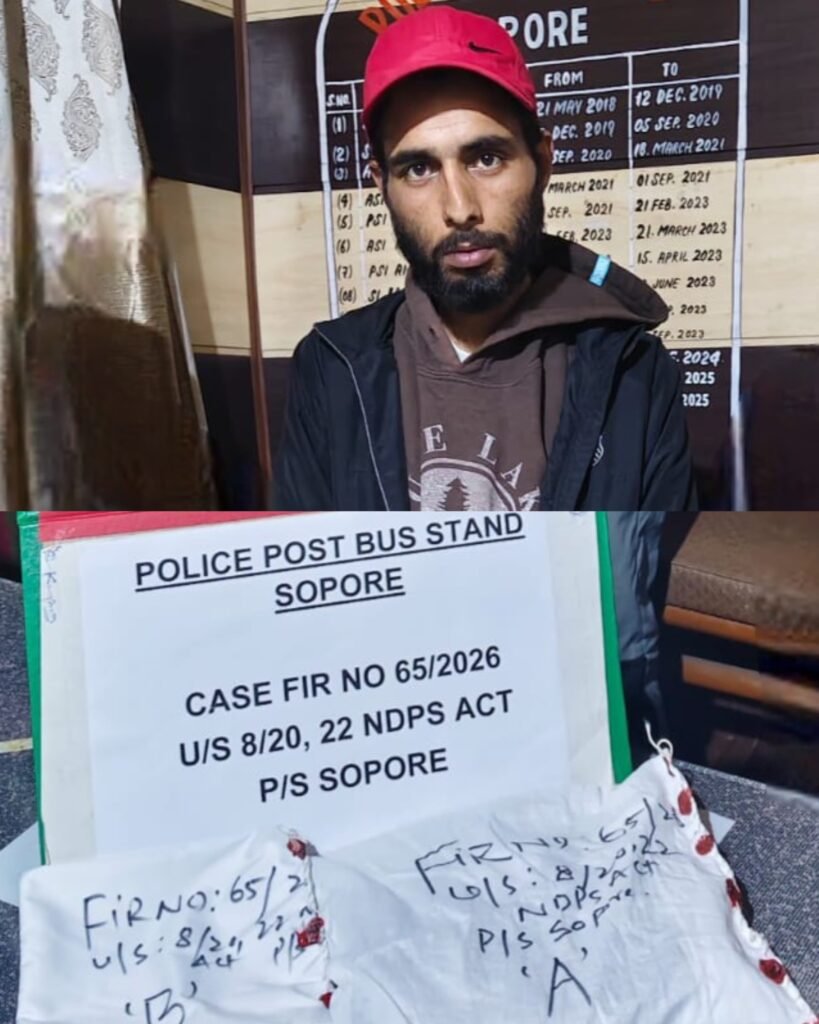 PORE
S.NO. FROM TO
(1) 21 MAY 2018 12 DEC. 2019
(2) DEC. 2019 05 SEP. 2020
(3) SEP. 2020 18. MARCH 2021
(4) ASI MARCH 2021 01 SEP. 2021
(5) PSI SEP. 2021 21 FEB. 2023
(6) ASI FEB. 2023 21. MARCH 2023
(7) PSI 15. APRIL 2023
(08) SI JUNE 2023
2023
SEP. 2023
2024
2025
2025
E LA
POLICE POST BUS STAND
SOPORE
CASE FIR NO 65/2026
U/S 8/20, 22 NDPS ACT
P/S SOPORE
FIR NO: 65/2
U/S: 8/20, 22
Act P/S
'B'
FIR NO. 65/2
U/S: 8/20,22
NDPS Act
P/S Sopore.
'A'